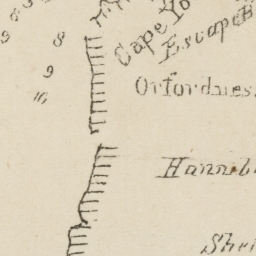 9 8
8
9
10
Cape Yo
Escape B
Orfordnes
Hannib
Shel